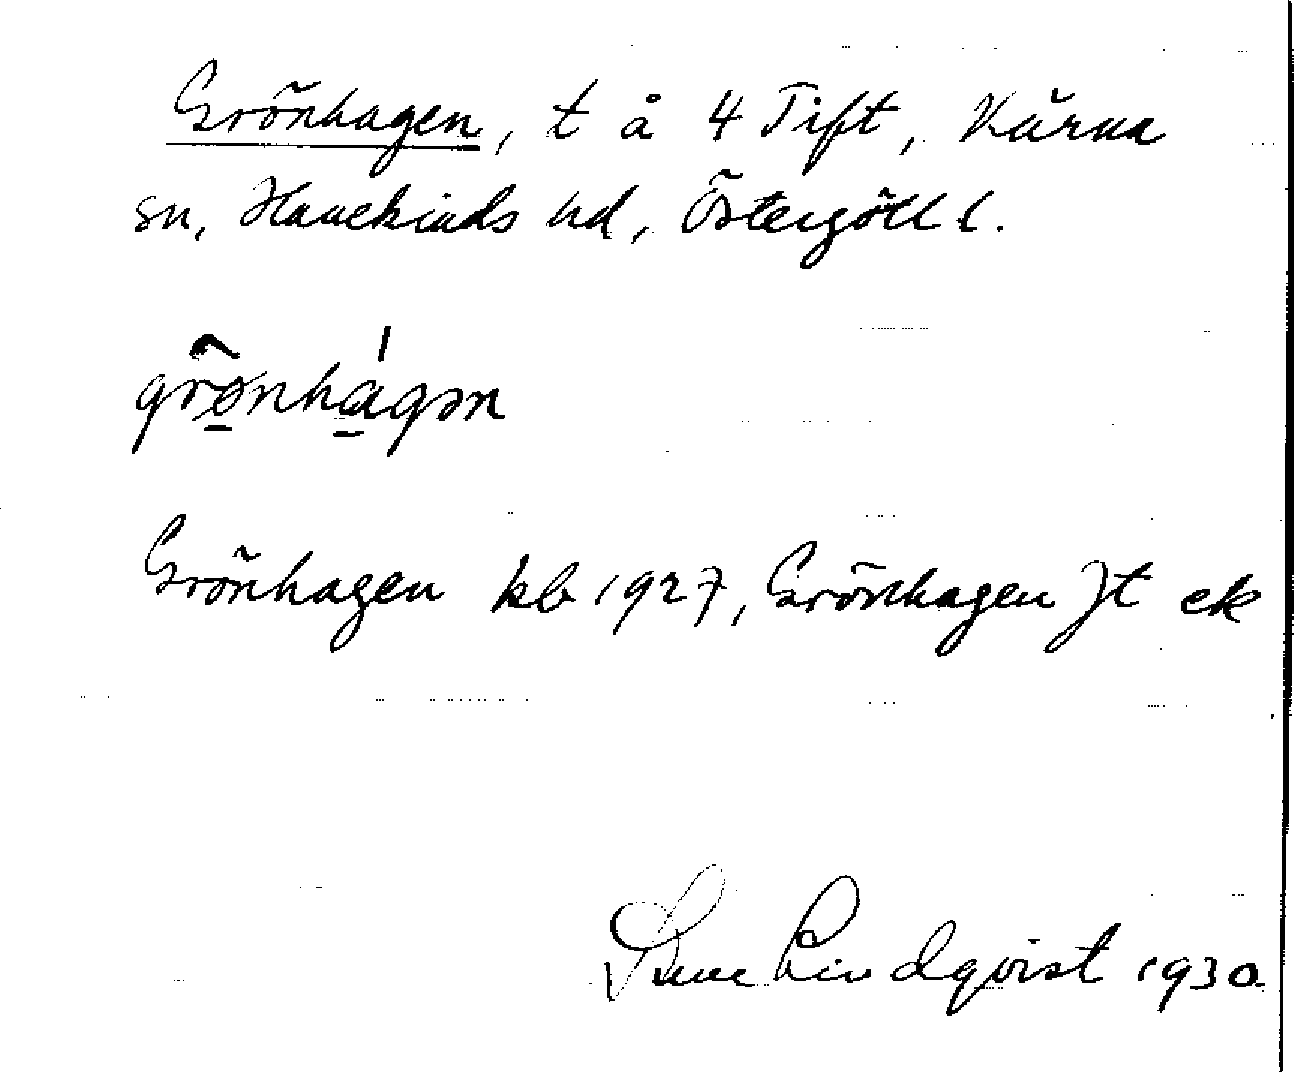 Grönhagen, t å 4 Tift, Kärna
sn, Hanekinds hd, Östergötl l.
grö̂nhágən
Grönhagen kb 1927, Grönhagen Jt ek
Sune Lindqvist 1930